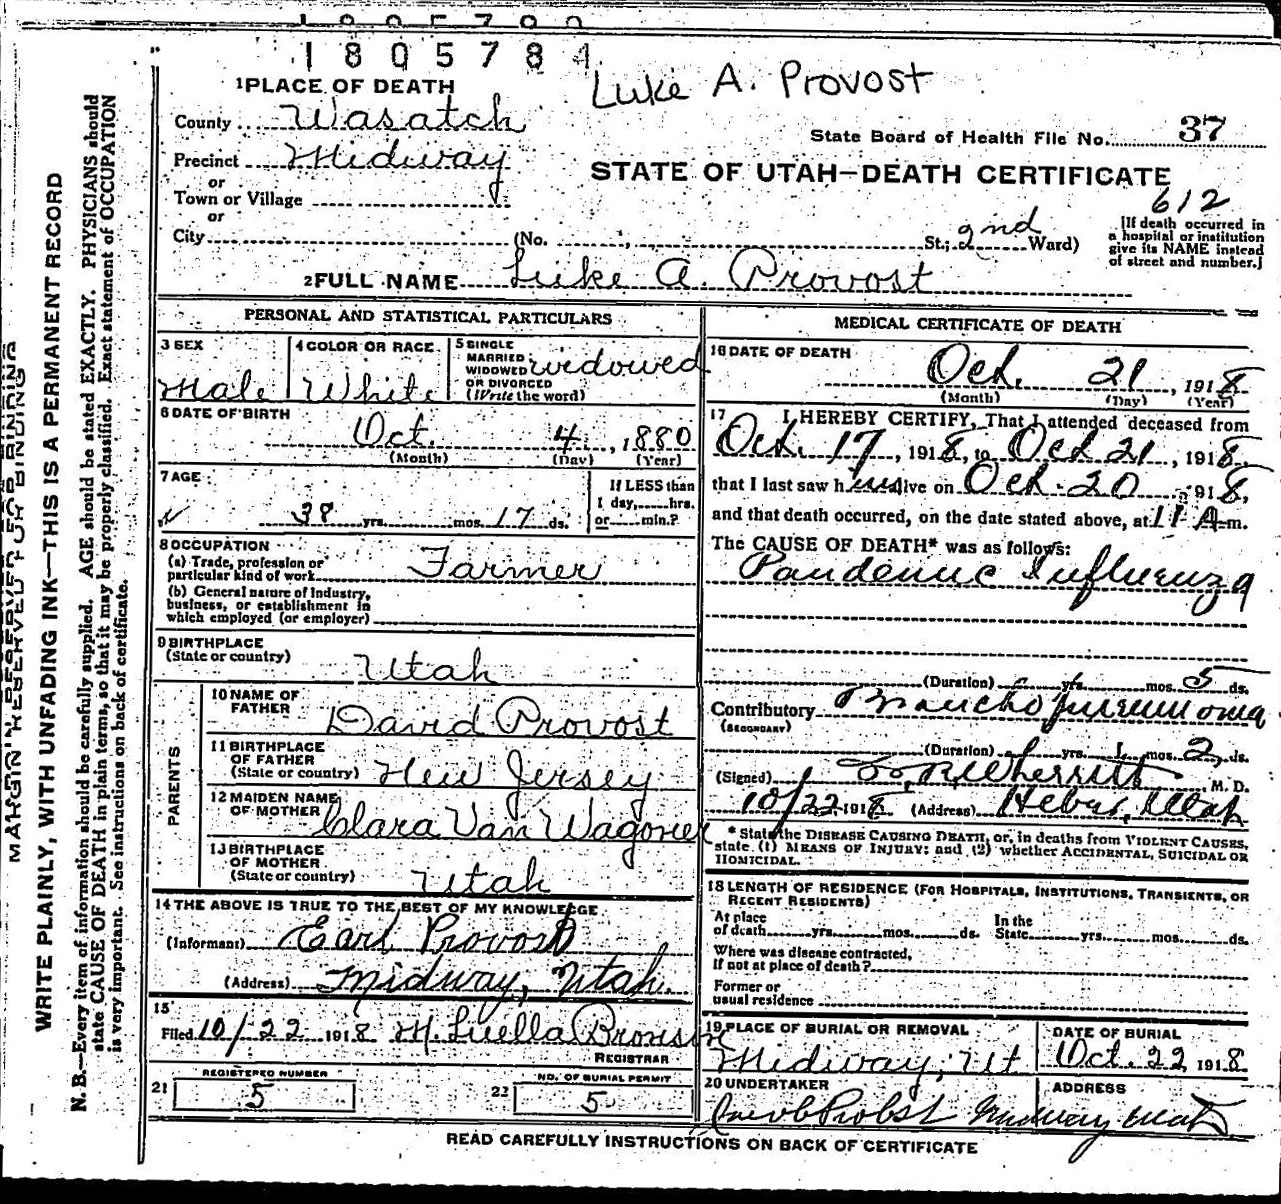 1805784
Luke A. Provost
1 PLACE OF DEATH
County Wasatch
State Board of Health File No. 37
Precinct Midway
or
STATE OF UTAH—DEATH CERTIFICATE
Town or Village
or
612
City (No. , St.; 2nd Ward)
[If death occurred in
a hospital or institution
give its NAME instead
of street and number.]
2 FULL NAME Luke A. Provost
PERSONAL AND STATISTICAL PARTICULARS
3 SEX
Male
4 COLOR OR RACE
White
5 SINGLE
MARRIED
WIDOWED
OR DIVORCED
(Write the word)
widowed
6 DATE OF BIRTH
Oct. 4, 1880
(Month) (Day) (Year)
7 AGE
38 yrs. mos. 17 ds.
If LESS than
1 day, hrs.
or min.?
8 OCCUPATION
(a) Trade, profession or
particular kind of work Farmer
(b) General nature of Industry,
business, or establishment in
which employed (or employer)
9 BIRTHPLACE
(State or country) Utah
PARENTS
10 NAME OF
FATHER David Provost
11 BIRTHPLACE
OF FATHER
(State or country) New Jersey
12 MAIDEN NAME
OF MOTHER Clara Van Wagoner
13 BIRTHPLACE
OF MOTHER
(State or country) Utah
14 THE ABOVE IS TRUE TO THE BEST OF MY KNOWLEDGE
(Informant) Earl Provost
(Address) Midway, Utah.
15
Filed 10/22 1918 M. Luella Bronson
REGISTRAR
21 REGISTERED NUMBER
5
22 NO. OF BURIAL PERMIT
5
MEDICAL CERTIFICATE OF DEATH
16 DATE OF DEATH
Oct. 21, 1918
(Month) (Day) (Year)
17 I HEREBY CERTIFY, That I attended deceased from
Oct. 17, 1918, to Oct 21, 1918,
that I last saw him alive on Oct. 20, 1918,
and that death occurred, on the date stated above, at 11 A m.
The CAUSE OF DEATH* was as follows:
Pandemic Influenza
(Duration) yrs. mos. 5 ds.
Contributory Broncho pneumonia
(SECONDARY)
(Duration) yrs. mos. 2 ds.
(Signed) Wherritt M. D.
10/22 1918 (Address) Heber, Utah
* State the DISEASE CAUSING DEATH, or, in deaths from VIOLENT CAUSES,
state (1) MEANS OF INJURY; and (2) whether ACCIDENTAL, SUICIDAL OR
HOMICIDAL.
18 LENGTH OF RESIDENCE (FOR HOSPITALS, INSTITUTIONS, TRANSIENTS, OR
RECENT RESIDENTS)
At place
of death yrs. mos. ds.
In the
State yrs. mos. ds.
Where was disease contracted,
If not at place of death?
Former or
usual residence
19 PLACE OF BURIAL OR REMOVAL
Midway, Ut
DATE OF BURIAL
Oct. 22 1918
20 UNDERTAKER
Jacob Probst
ADDRESS
Midway Utah
READ CAREFULLY INSTRUCTIONS ON BACK OF CERTIFICATE
MARGIN RESERVED FOR BINDING
WRITE PLAINLY, WITH UNFADING INK—THIS IS A PERMANENT RECORD
N. B.—Every item of information should be carefully supplied. AGE should be stated EXACTLY. PHYSICIANS should
state CAUSE OF DEATH in plain terms, so that it may be properly classified. Exact statement of OCCUPATION
is very important. See instructions on back of certificate.